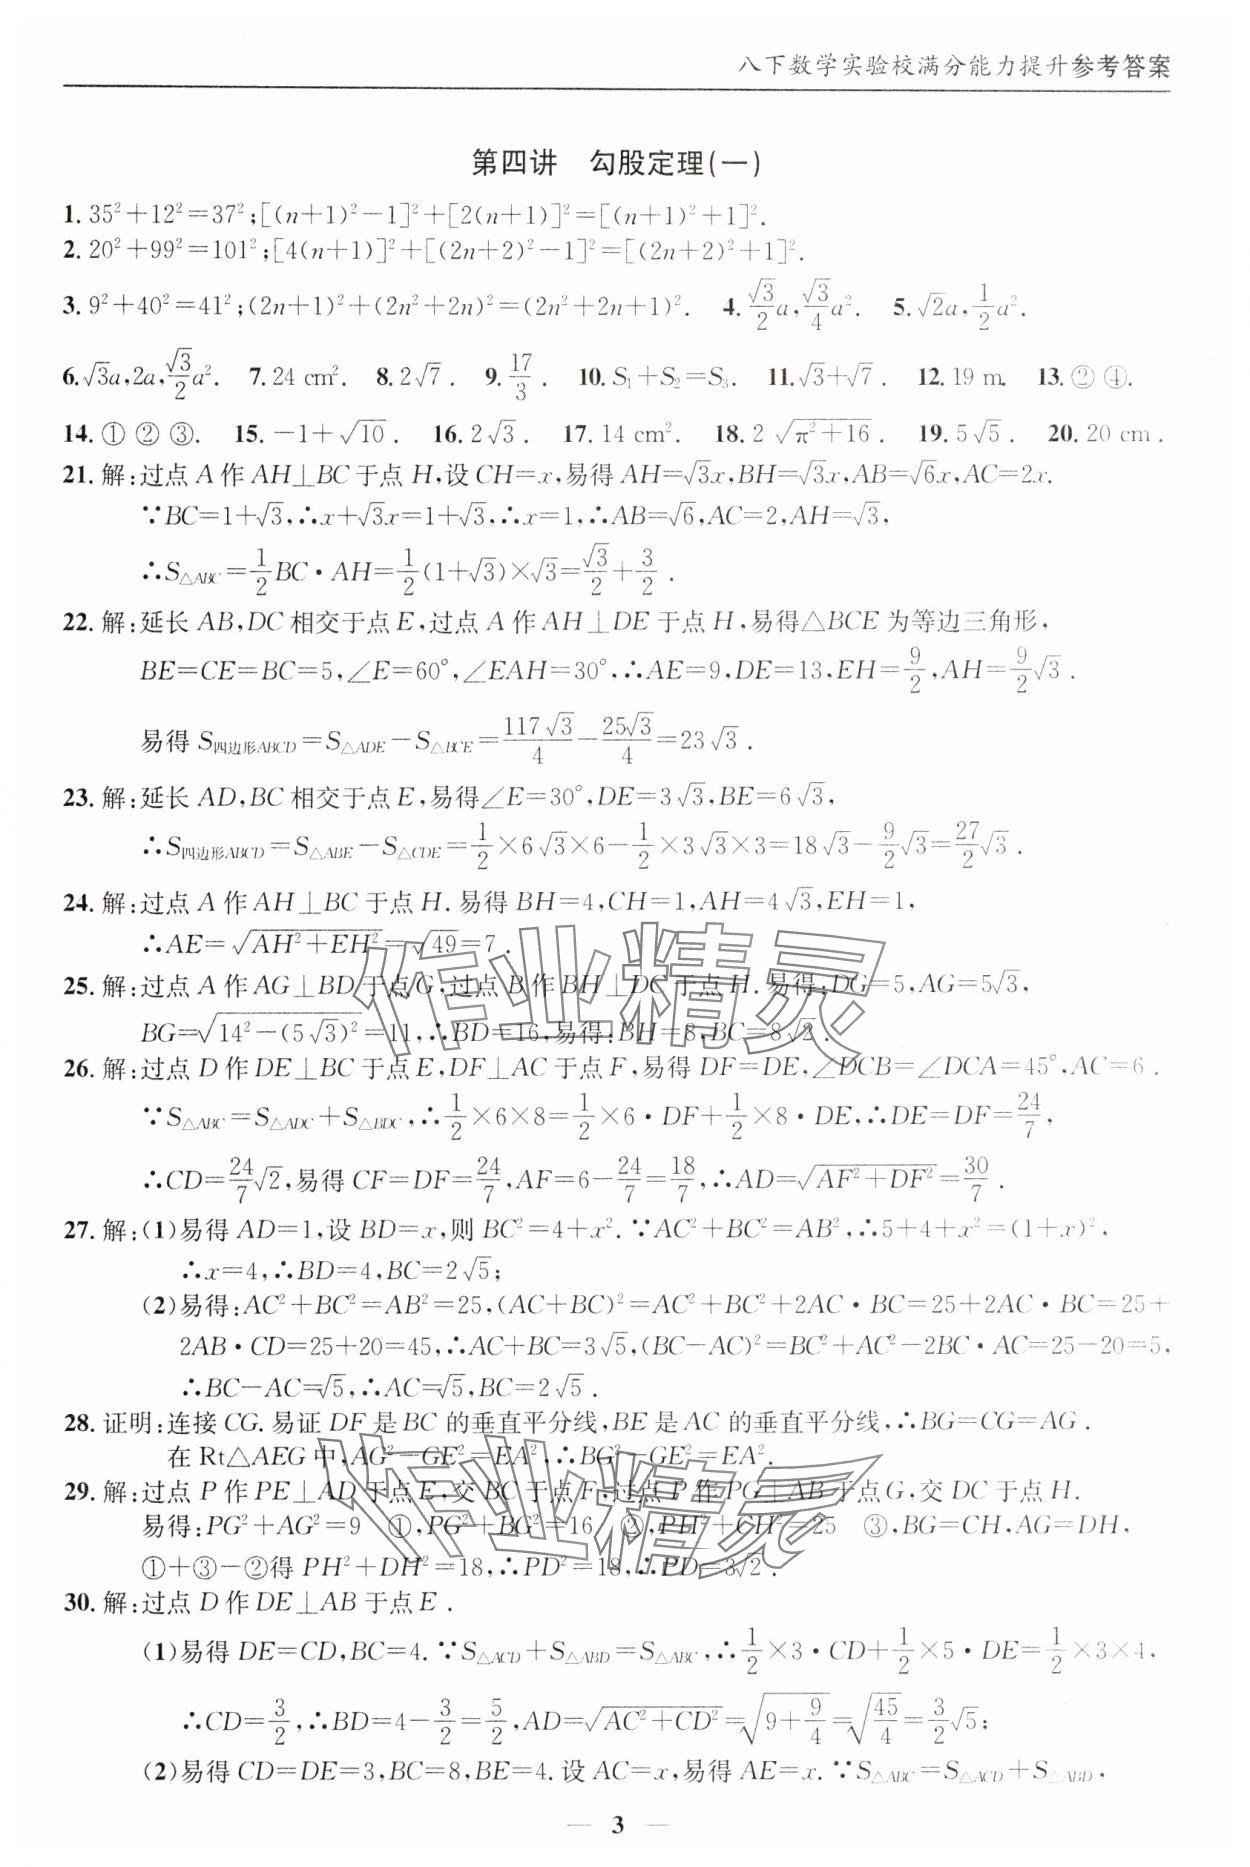 八下数学实验校满分能力提升参考答案
第四讲　勾股定理(一)
1. 35²+12²=37²;[(n+1)²-1]²+[2(n+1)]²=[(n+1)²+1]².
2. 20²+99²=101²;[4(n+1)]²+[(2n+2)²-1]²=[(2n+2)²+1]².
3. 9²+40²=41²;(2n+1)²+(2n²+2n)²=(2n²+2n+1)².　4. √3/2 a,√3/4 a².　5. √2a,1/2 a².
6. √3a,2a,√3/2 a².　7. 24 cm².　8. 2√7.　9. 17/3.　10. S₁+S₂=S₃.　11. √3+√7.　12. 19 m.　13. ② ④.
14. ① ② ③.　15. -1+√10.　16. 2√3.　17. 14 cm².　18. 2√(π²+16).　19. 5√5.　20. 20 cm.
21. 解:过点A作AH⊥BC于点H,设CH=x,易得AH=√3x,BH=√3x,AB=√6x,AC=2x.
∵BC=1+√3,∴x+√3x=1+√3,∴x=1,∴AB=√6,AC=2,AH=√3,
∴S△ABC=1/2 BC·AH=1/2(1+√3)×√3=√3/2+3/2.
22. 解:延长AB,DC相交于点E,过点A作AH⊥DE于点H,易得△BCE为等边三角形,
BE=CE=BC=5,∠E=60°,∠EAH=30°,∴AE=9,DE=13,EH=9/2,AH=9/2√3.
易得S四边形ABCD=S△ADE-S△BCE=117√3/4-25√3/4=23√3.
23. 解:延长AD,BC相交于点E,易得∠E=30°,DE=3√3,BE=6√3,
∴S四边形ABCD=S△ABE-S△CDE=1/2×6√3×6-1/2×3√3×3=18√3-9/2√3=27/2√3.
24. 解:过点A作AH⊥BC于点H.易得BH=4,CH=1,AH=4√3,EH=1,
∴AE=√(AH²+EH²)=√49=7.
25. 解:过点A作AG⊥BD于点G,过点B作BH⊥DC于点H.易得:DG=5,AG=5√3,
BG=√(14²-(5√3)²)=11,∴BD=16,易得:BH=8,BC=8√2.
26. 解:过点D作DE⊥BC于点E,DF⊥AC于点F,易得DF=DE,∠DCB=∠DCA=45°,AC=6.
∵S△ABC=S△ADC+S△BDC,∴1/2×6×8=1/2×6·DF+1/2×8·DE,∴DE=DF=24/7,
∴CD=24/7√2,易得CF=DF=24/7,AF=6-24/7=18/7,∴AD=√(AF²+DF²)=30/7.
27. 解:(1)易得AD=1,设BD=x,则BC²=4+x².∵AC²+BC²=AB²,∴5+4+x²=(1+x)²,
∴x=4,∴BD=4,BC=2√5;
(2)易得:AC²+BC²=AB²=25,(AC+BC)²=AC²+BC²+2AC·BC=25+2AC·BC=25+
2AB·CD=25+20=45,∴AC+BC=3√5,(BC-AC)²=BC²+AC²-2BC·AC=25-20=5,
∴BC-AC=√5,∴AC=√5,BC=2√5.
28. 证明:连接CG.易证DF是BC的垂直平分线,BE是AC的垂直平分线,∴BG=CG=AG.
在Rt△AEG中,AG²-GE²=EA²,∴BG²-GE²=EA².
29. 解:过点P作PE⊥AD于点E,交BC于点F,过点P作PG⊥AB于点G,交DC于点H.
易得:PG²+AG²=9　①,PG²+BG²=16　②,PH²+CH²=25　③,BG=CH,AG=DH,
①+③-②得PH²+DH²=18,∴PD²=18,∴PD=3√2.
30. 解:过点D作DE⊥AB于点E.
(1)易得DE=CD,BC=4.∵S△ACD+S△ABD=S△ABC,∴1/2×3·CD+1/2×5·DE=1/2×3×4,
∴CD=3/2,∴BD=4-3/2=5/2,AD=√(AC²+CD²)=√(9+9/4)=√(45/4)=3/2√5;
(2)易得CD=DE=3,BC=8,BE=4.设AC=x,易得AE=x.∵S△ABC=S△ACD+S△ABD,
— 3 —
作业精灵
作业精灵